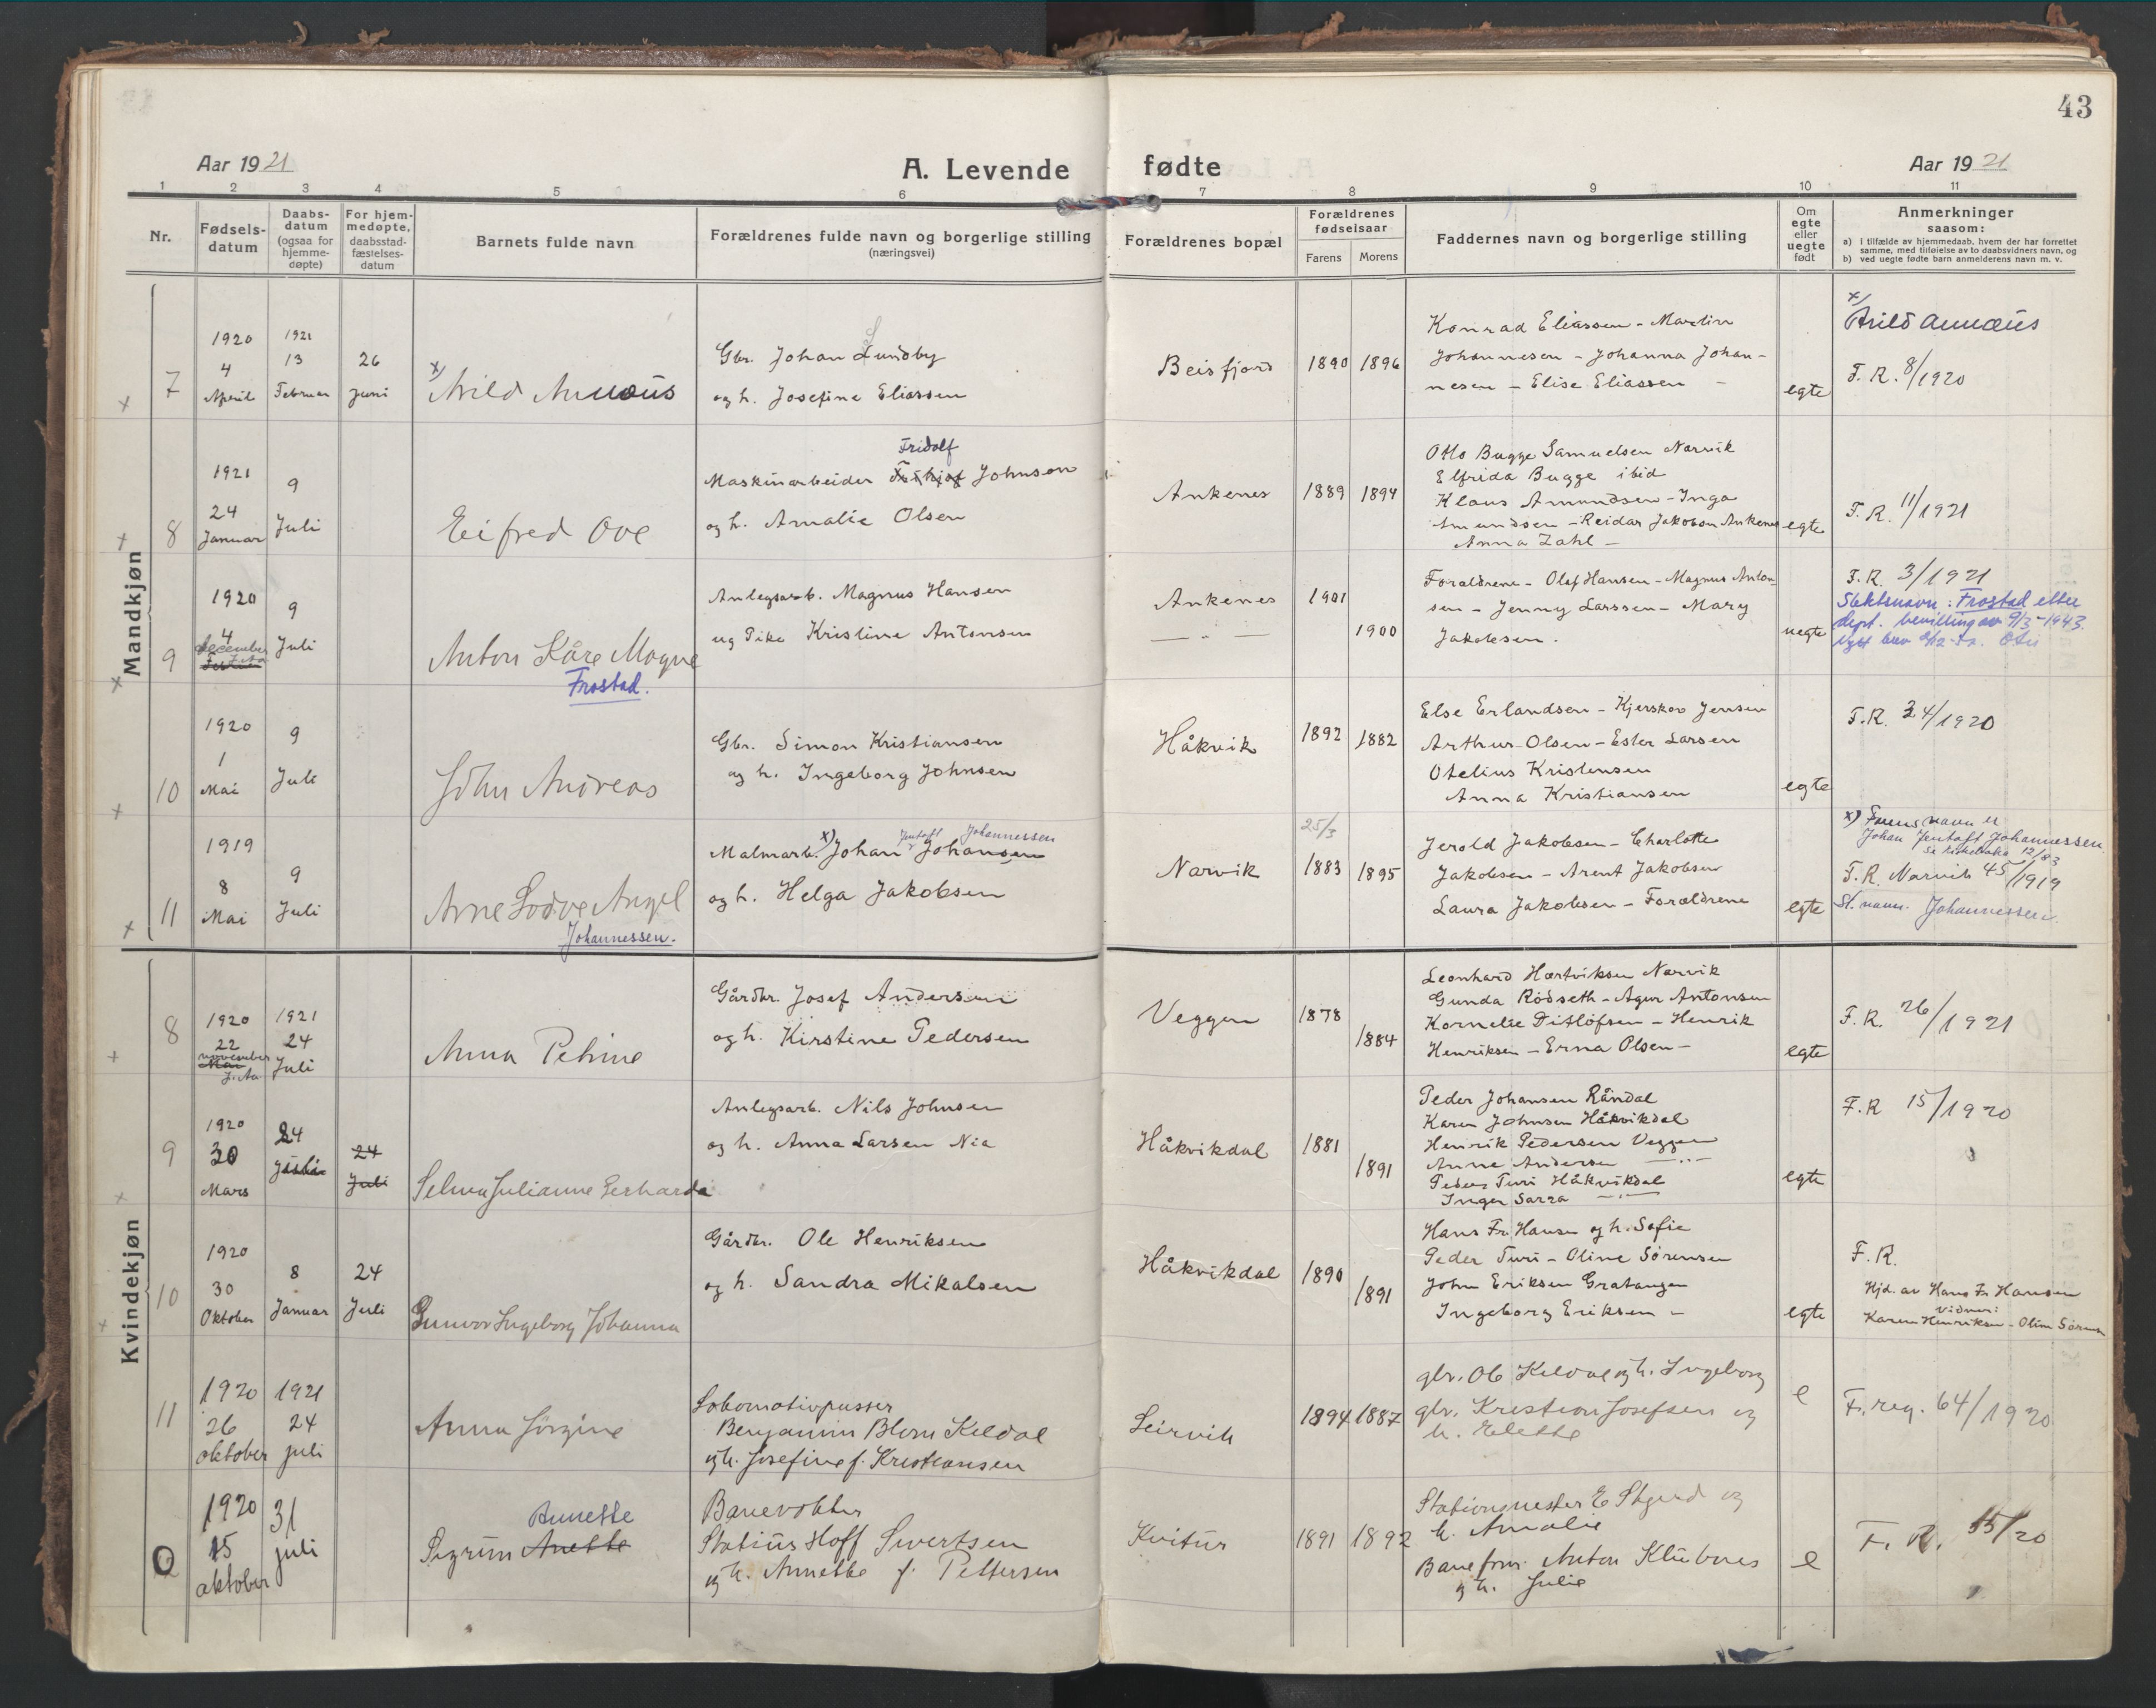 43
Aar 1921
A. Levende fødte
Aar 1921
1 2 3 4 5 6 7 8 9 10 11
Nr.
Fødselsdatum
Daabsdatum (ogsaa for hjemmedøpte)
For hjemmedøpte, daabsstadfæstelsesdatum
Barnets fulde navn
Forældrenes fulde navn og borgerlige stilling (næringsvei)
Forældrenes bopæl
Forældrenes fødselsaar
Farens
Morens
Faddernes navn og borgerlige stilling
Om egte eller uegte født
Anmerkninger saasom:
a) i tilfælde av hjemmedaab, hvem der har forrettet samme, med tilføielse av to daabsvidners navn, og
b) ved uegte fødte barn anmelderens navn m. v.
Mandkjøn
7
1920
4
April
1921
13
Februar
26
Juni
x) Arild Annæus
Gbr. Johan Lundby
og h. Josefine Eliassen
Beisfjord
1890
1896
Konrad Eliassen - Martin
Johannesen - Johanna Johan-
nesen - Elise Eliassen -
egte
x) Arild Annæus
F. R. 8/1920
8
1921
24
Januar
9
Juli
Eifred Ove
Fridolf
Maskinarbeider Johnson
og h. Amalie Olsen
Ankenes
1889
1894
Otto Bugge Samuelsen Narvik
Elfrida Bugge ibid
Klaus Amundsen - Inga
Amundsen - Reidar Jakobsen Ankenes
Anna Zahl -
egte
F. R. 11/1921
9
1920
4
december
9
Juli
Anton Kåre Magne
Frostad.
Anlegsarb. Magnus Hansen
ug Pike Kristine Antonsen
Ankenes
— " —
1901
1900
Forældrene - Olaf Hansen - Magnus Anton-
sen - Jenny Larssen - Mary
Jakobsen.
uegte
F. R. 3/1921
Slektsnavn: Frostad etter
dept. bevilling av 9/3-1943.
10
1920
1
Mai
9
Juli
John Andreas
Gbr. Simon Kristiansen
og h. Ingeborg Johnsen
Håkvik
1892
1882
Else Erlandsen - Kjerskov Jensen
Arthur Olsen - Ester Larsen
Otelius Kristensen
Anna Kristiansen
egte
F. R. 24/1920
11
1919
8
Mai
9
Juli
Arne Lodve Angel
Johannessen.
Jentoft Johannessen
Malmarb. x) Johan Johansen
og h. Helga Jakobsen
Narvik
25/3
1883
1895
Jerold Jakobsen - Charlotte
Jakobsen - Arent Jakobsen
Laura Jakobsen - Forældrene
egte
x) Farens navn er
Johan Jentoft Johannessen.
F. R. Narvik 45/1919
Sl. navn. Johannessen.
Kvindekjøn
8
1920
22
november
Mai
1921
24
Juli
Anna Petrine
Gårdbr. Josef Andersen
og h. Kirstine Pedersen
Veggen
1878
1884
Leonhard Hartviksen Narvik
Gunda Rödseth - Agur Antonsen
Kornelie Ditlofsen - Henrik
Henriksen - Erna Olsen -
egte
F. R. 26/1921
9
1920
30
Mars
24
24
Juli
Selma Julianne Gerharda
Anlegsarb. Nils Johnsen
og h. Anna Larsen Nia
Håkvikdal
1881
1891
Peder Johansen Råndal
Karen Johnsen Håkvikdal
Henrik Pedersen Veggen
Anne Andersen — " —
Peder Turi Håkvikdal
Inger Sarra — " —
egte
F. R 15/1920
10
1920
30
Oktober
8
Januar
24
Juli
Gunvor Ingeborg Johanna
Gårdbr. Ole Henriksen
og h. Sandra Mikalsen
Håkvikdal
1890
1891
Hans Fr. Hansen og h. Sofie
Peder Turi - Oline Sørensen
John Eriksen Gratangen
Ingeborg Eriksen -
egte
F. R.
Hjd. av Hans Fr. Hansen
Vidner:
Karen Henriksen - Oline Sørensen
11
1920
26
oktober
1921
24
juli
Anna Jörgine
Lokomotivpusser
Benjamin Blom Kildal
og h. Josefine f. Kristiansen
Leirvik
1894
1887
gbr. Ole Kildal og h. Ingeborg
gbr. Kristian Josefsen og
h. Elette
e
F. reg. 64/1920
1920
15
oktober
31
juli
Annette
Sigrun Anette
Banevokter
Statius Hoff Sivertsen
og h. Annette f. Pettersen
Kvitur
1891
1892
Stationsmester E Stgerd og
h. Amalie
Baneform. Anton Klubnes
og h. Julie
e
F. R. 55/20